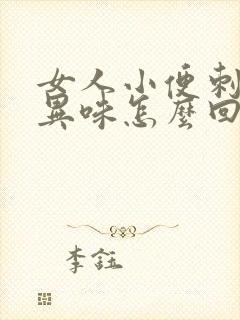 女人小便刺
異味怎麼回
李鈺